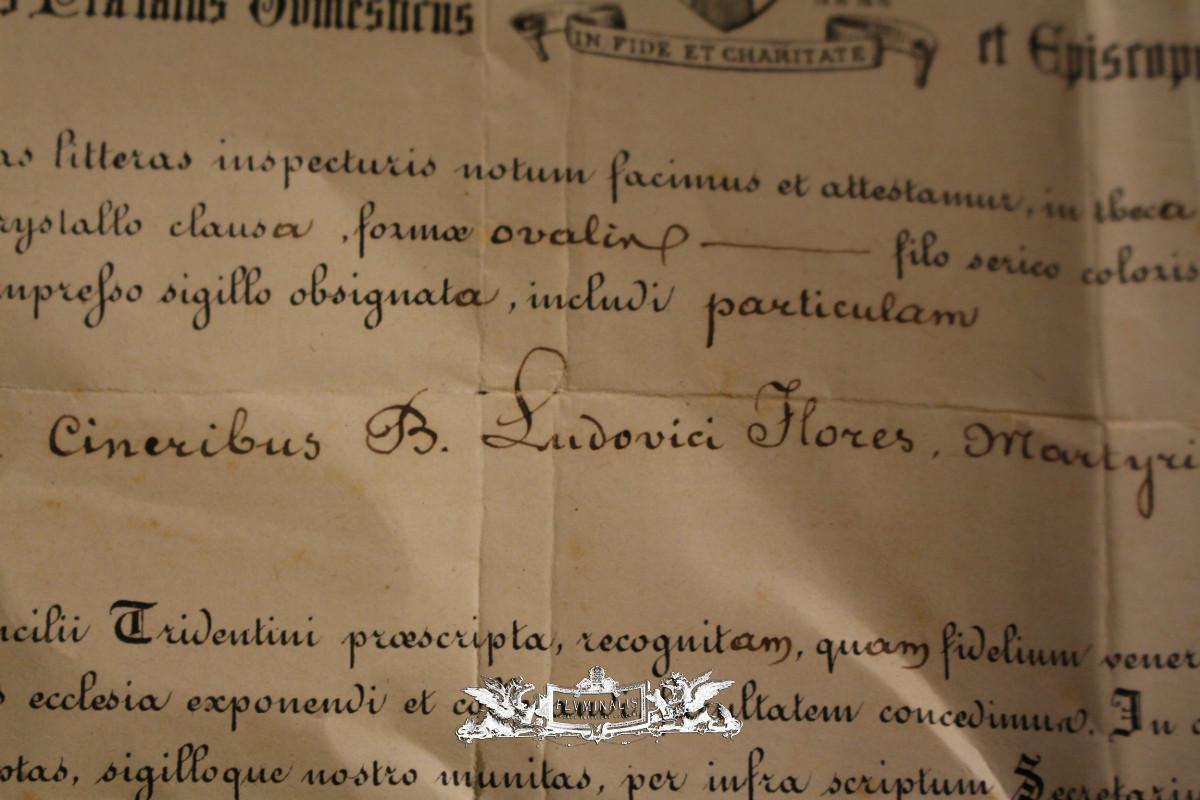 Prælatus Domesticus
IN FIDE ET CHARITATE
et Episcop
as litteras inspecturis notum facimus et attestamur, in theca
rystallo clausa, formæ ovalis filo serico coloris
mpresso sigillo obsignata, includi particulam
Cineribus B. Ludovici Flores, Martyri
ncilii Tridentini præscripta, recognitam, quam fidelium vener
s ecclesia exponendi et co ultatem concedimus. In
ptas, sigilloque nostro munitas, per infra scriptum Secretariu